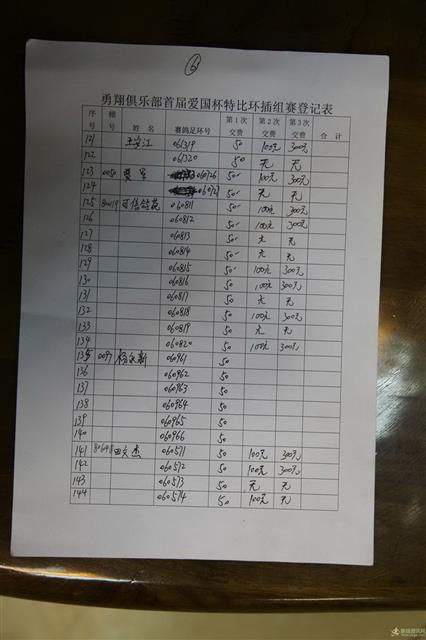 6
勇翔俱乐部首届爱国杯特比环插组赛登记表
序号 棚号 姓名 赛鸽足环号 第1次交费 第2次交费 第3次交费 合计
121 王安江 061319 50 100元 300元
122 061320 50 天 天
123 0050 060726 50 100元 300元
124 50 天 天
125 060811 50 100元 300元
126 060812 50 100元 300元
127 060813 50 天 天
128 060814 50 天 天
129 060815 50 100元 300元
130 060816 50 100元 300元
131 060817 50 天 天
132 060818 50 100元 300元
133 060819 50 天 天
134 060820 50 100元 300元
135 0097 杨永新 060961 50
136 060962 50
137 060963 50
138 060964 50
139 060965 50
140 060966 50
141 田文杰 060571 50 100元 300元
142 060572 50 100元 300元
143 060573 50 天 天
144 060574 50 100元 天